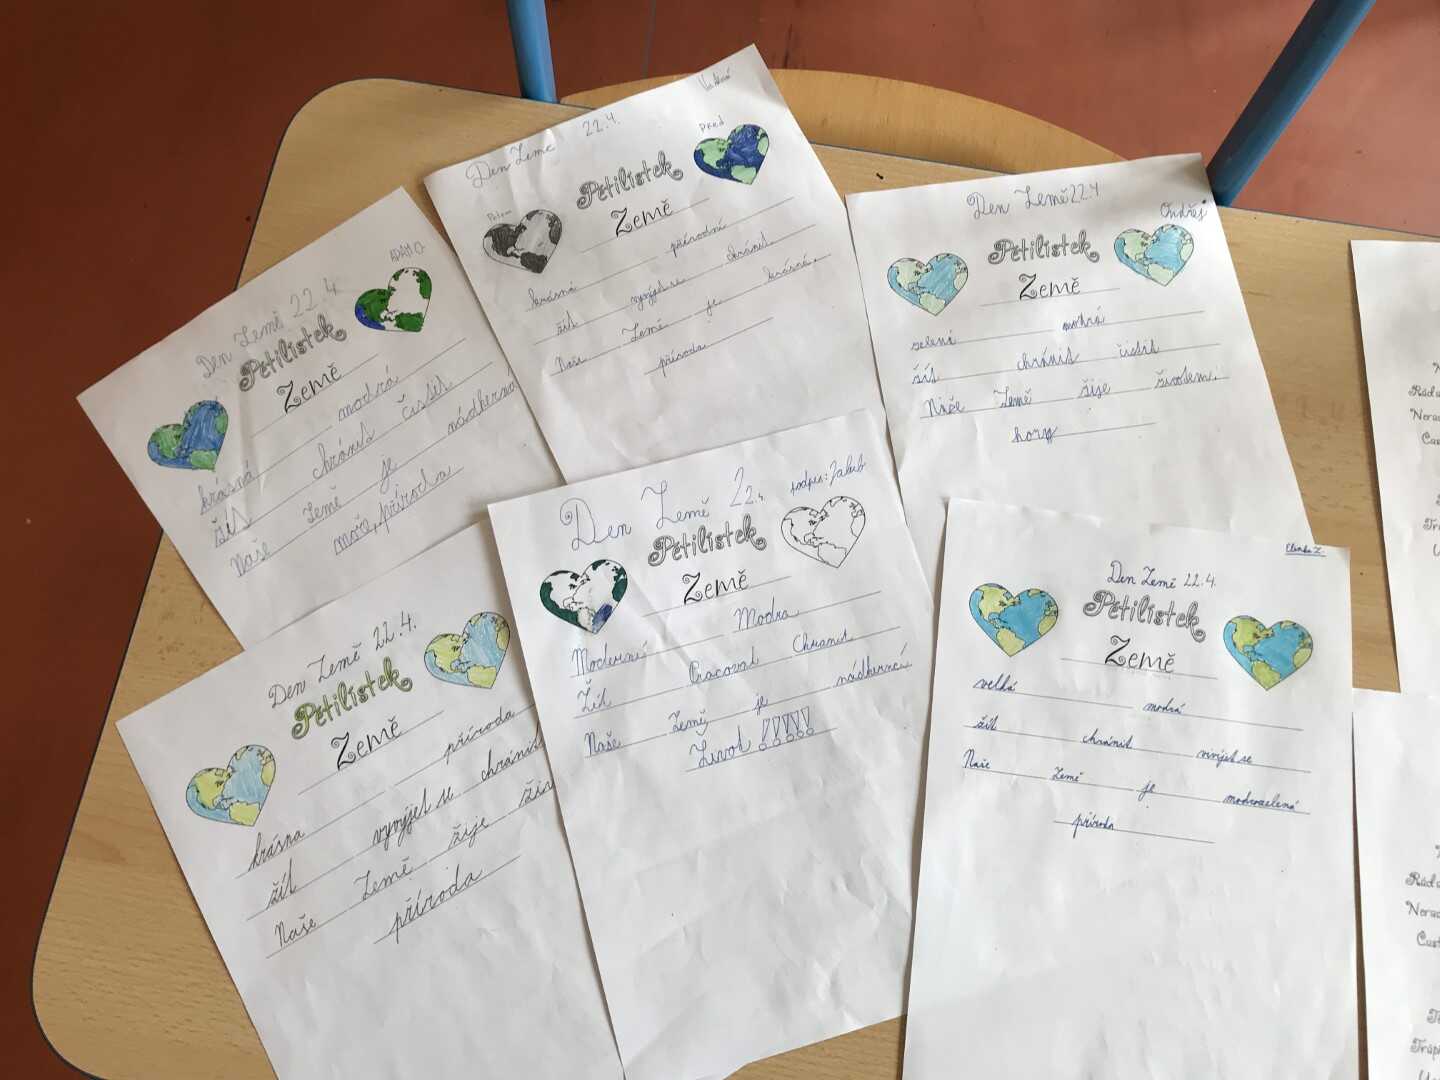 Den Země 22.4
ADAM O.
Pětilístek
Země
krásná modrá
žít chránit čistit
Naše Země je nádherná
moře, příroda
Den Země 22.4.
Před
Potom
Pětilístek
Země
krásná přírodní
žít vyvýjet se chránit
Naše Země je krásná.
příroda
Den Země 22.4
Ondřej
Pětilístek
Země
zelená modrá
žít chránit čistit
Naše Země žije životem.
hory
Den Země 22.4.
Pětilístek
Země
krásna příroda
žít vyvýjet se chránit
Naše Země žije
příroda
Den Země 22.4.
podpis: Jakub
Pětilístek
Země
Moderní Modra
Žít Pracovat Chranit
Naše Země je nádherná
Život !!!!!
Den Země 22.4.
Pětilístek
Země
velká modrá
žít chránit vivíjet se
Naše Země je modrozelená
příroda